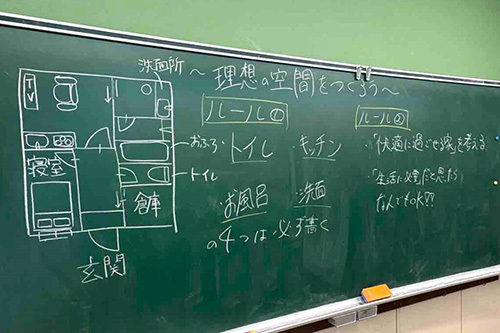 洗面所
～理想の空間をつくろう～
ルール①
ルール②
おふろ
・トイレ
・キッチン
トイレ
・お風呂
・洗面
の4つは必ず書く
・「快適に過ごせる家」を考える
・「生活に必要」だと思ったら
なんでもOK!?
寝室
倉庫
玄関